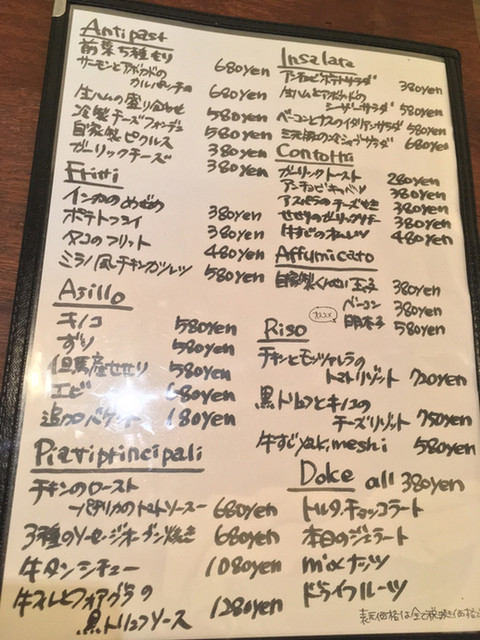 Antipast
前菜5種もり 680yen
サーモンとアボカドの
カルパッチョ 680yen
生ハムの盛り合わせ 580yen
冷製チーズフォンデュ 580yen
自家製ピクルス 380yen
ガーリックチーズ 380yen
Fritti
インカのめざめ 380yen
ポテトフライ 380yen
タコのフリット 480yen
ミラノ風チキンカツレツ 580yen
Asillo
キノコ 580yen
ずり 580yen
但馬産せせり 580yen
エビ 680yen
追加バゲット 180yen
Piattiprincipali
チキンのロースト
パプリカのトマトソース 680yen
3種のソーセージオーブン焼き 680yen
牛タンシチュー 1080yen
牛ヒレとフォアグラの
黒トリュフソース 1280yen
Insalata
アンチョビポテトサラダ 380yen
生ハムとアボカドの
シーザーサラダ 580yen
ベーコンとナスのイタリアンサラダ 580yen
冷しゃぶサラダ 680yen
Contorni
ガーリックトースト 280yen
アンチョビキャベツ 380yen
アスパラのチーズ焼き 380yen
せせりのガーリックソテー 380yen
牛すじのオムレツ 480yen
Affumicato
自家製くんせい玉子 380yen
ベーコン 380yen
オススメ 明太子 580yen
Riso
チキンとモッツァレラの
トマトリゾット 720yen
黒トリュフとキノコの
チーズリゾット 750yen
牛すじyakimeshi 580yen
Dolce all 380yen
トルタチョッコラート
本日のジェラート
mixナッツ
ドライフルーツ
表示価格は全て税抜き価格